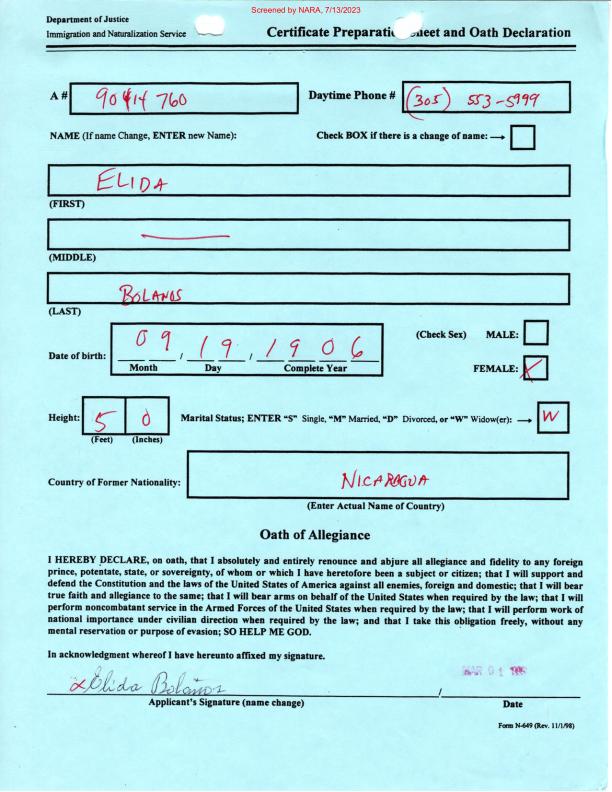 Screened by NARA, 7/13/2023
Department of Justice
Immigration and Naturalization Service
Certificate Preparation Sheet and Oath Declaration
A # 90414 760 Daytime Phone # (305) 553-5999
NAME (If name Change, ENTER new Name): Check BOX if there is a change of name: →
ELIDA
(FIRST)
(MIDDLE)
BOLANOS
(LAST)
(Check Sex) MALE:
Date of birth: 09 / 19 / 1906
Month Day Complete Year
FEMALE: X
Height: 5 0 Marital Status; ENTER “S” Single, “M” Married, “D” Divorced, or “W” Widow(er): → W
(Feet) (Inches)
Country of Former Nationality: NICARAGUA
(Enter Actual Name of Country)
Oath of Allegiance
I HEREBY DECLARE, on oath, that I absolutely and entirely renounce and abjure all allegiance and fidelity to any foreign
prince, potentate, state, or sovereignty, of whom or which I have heretofore been a subject or citizen; that I will support and
defend the Constitution and the laws of the United States of America against all enemies, foreign and domestic; that I will bear
true faith and allegiance to the same; that I will bear arms on behalf of the United States when required by the law; that I will
perform noncombatant service in the Armed Forces of the United States when required by the law; that I will perform work of
national importance under civilian direction when required by the law; and that I take this obligation freely, without any
mental reservation or purpose of evasion; SO HELP ME GOD.
In acknowledgment whereof I have hereunto affixed my signature.
MAR 01
x Elida Bolaños /
Applicant's Signature (name change) Date
Form N-649 (Rev. 11/1/98)